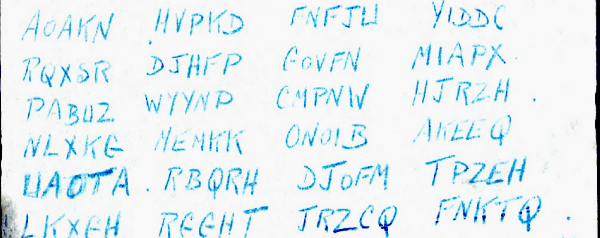 AOAKN HVPKD FNFJU YIDDC
RQXSR DJHFP GOVFN MIAPX
PABUZ WYYNP CMPNW HJRZH
NLXKG MEMKK ONOIB AKEEQ
UAOTA RBQRH DJOFM TPZEH
LKXGH RGGHT JRZCQ FNKTQ